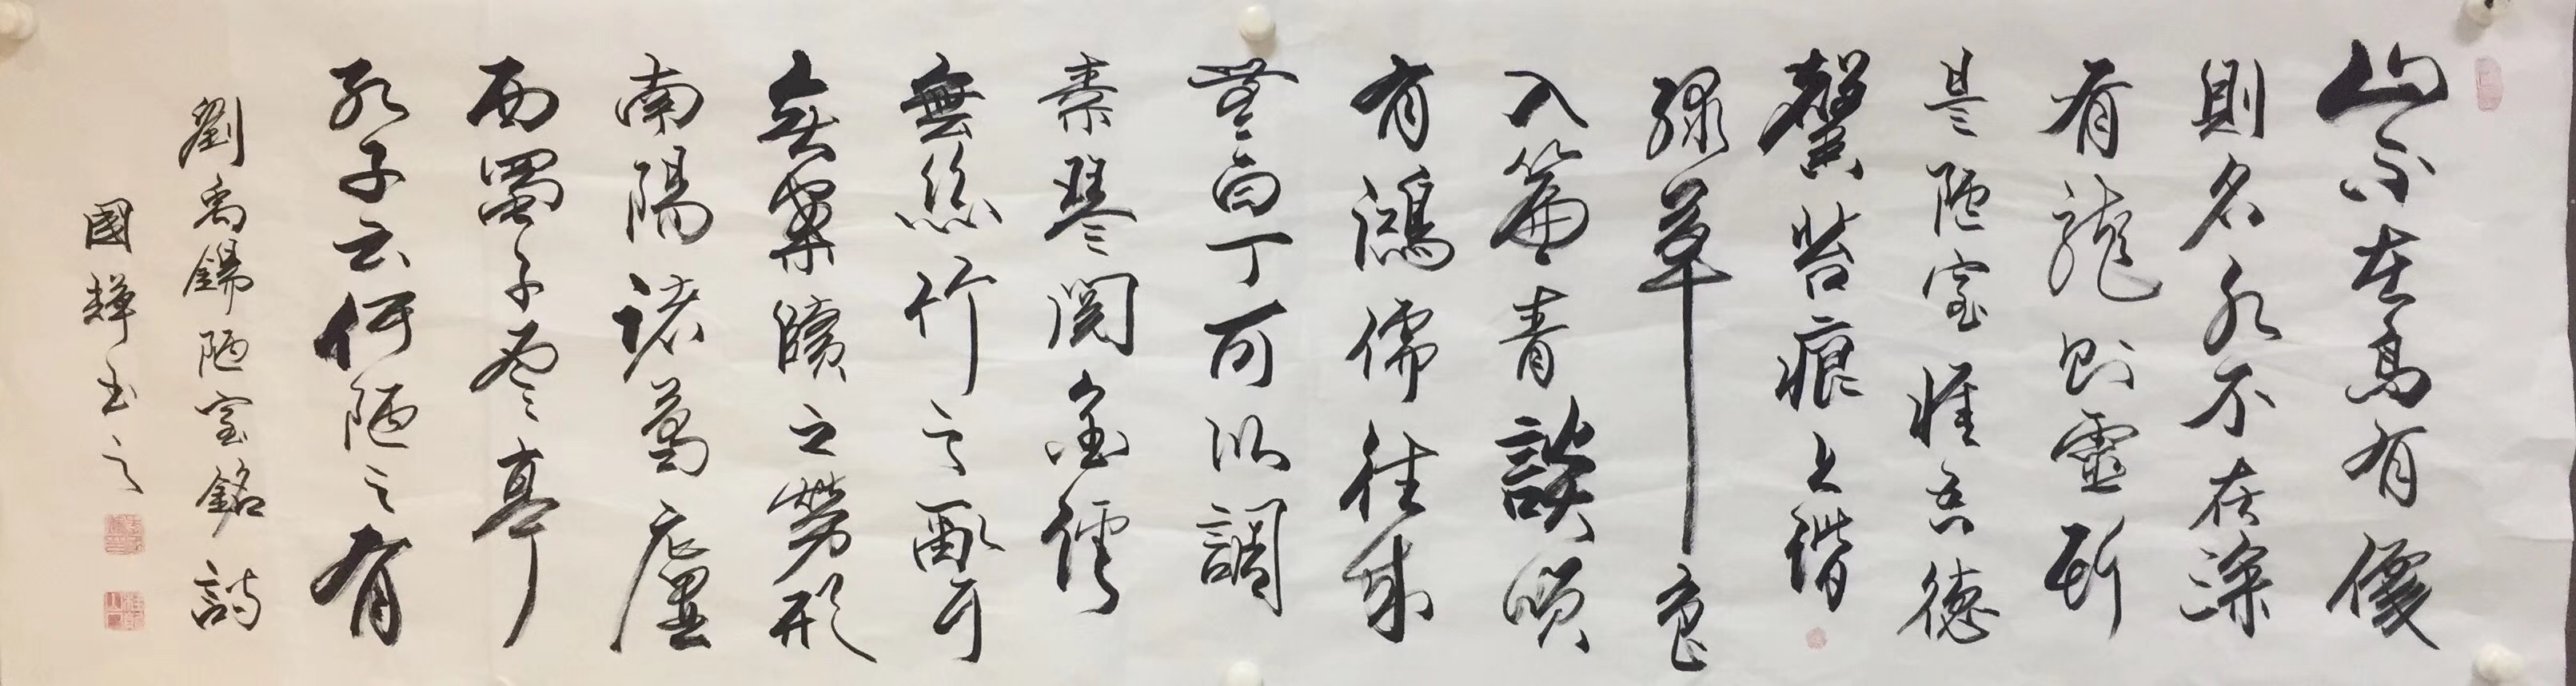 山不在高有僊
則名水不在深
有龍則靈斯
是陋室惟吾德
馨苔痕上階
綠草色
入簾青談咲
有鴻儒往來
無白丁可以調
素琴閱金經
無絲竹之亂耳
無案牘之勞形
南陽諸葛廬
西蜀子雲亭
孔子云何陋之有
劉禹錫陋室銘詩
國輝書之